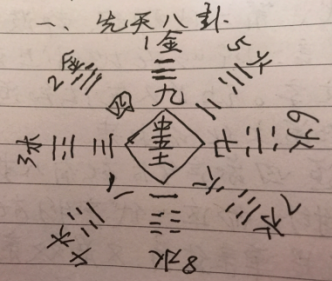 一、先天八卦.
1金
2
5
九
四
二
三
七
6火
中
五
土
3
八
一
六
7
4
8水